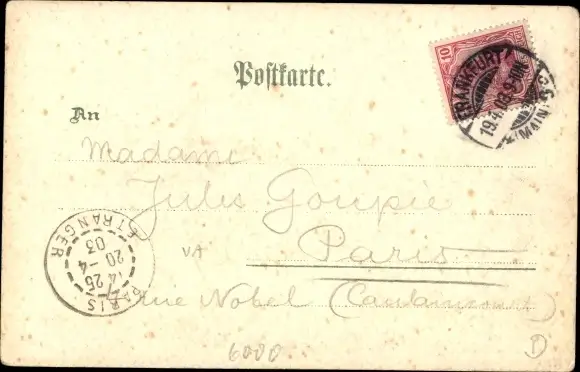 Postkarte.
10
FRANKFURT
19.4.03
(MAIN)
An
Madame
Jules Goupie
Paris
rue Nobel (Caulaincourt)
PARIS
14 25
20-4
03
ETRANGER
VA
6000
D